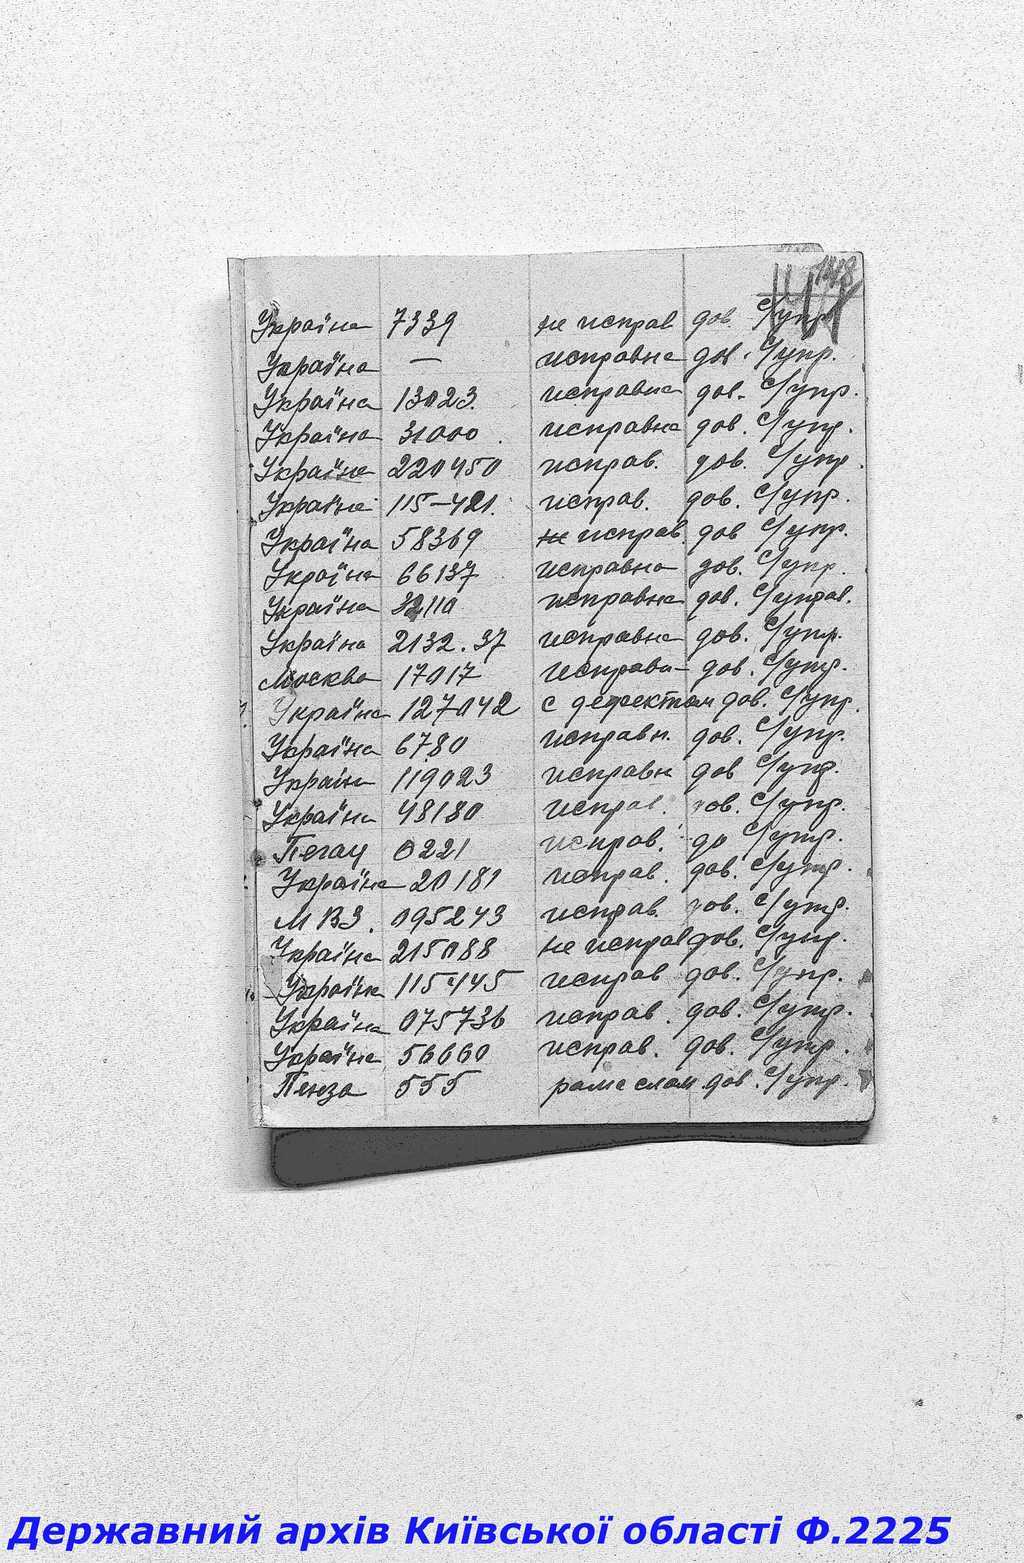 148
Україна 7339 не исправ дов. С/упр.
Україна — исправна дов. С/упр.
Україна 13023. исправна дов. С/упр.
Україна 31000. исправна дов. С/упр.
Україна 220450 исправ. дов. С/упр.
Україна 115-421. исправ. дов. С/упр.
Україна 58369 не исправ. дов С/упр.
Україна 66137 исправна дов. С/упр.
Україна 32110 исправна дов. С/управ.
Україна 2132.37 исправна дов. С/упр.
Москва 17017 исправн дов. С/упр.
Україна 127042 с дефектом дов. С/упр.
Україна 6780 исправн. дов. С/упр.
Україна 119023 исправн дов С/упр.
Україна 48180 исправ. дов. С/упр.
Пегац 0221 исправ. до С/упр.
Україна 20181 исправ. дов. С/упр.
МВЗ. 095243 исправ. дов. С/упр.
Україна 215088 не исправ дов. С/упр.
Україна 115445 исправ дов. С/упр.
Україна 075736 исправ. дов. С/упр.
Україна 56660 исправ. дов. С/упр.
Пенза 555 рама слом. дов. С/упр.
Державний архів Київської області Ф.2225